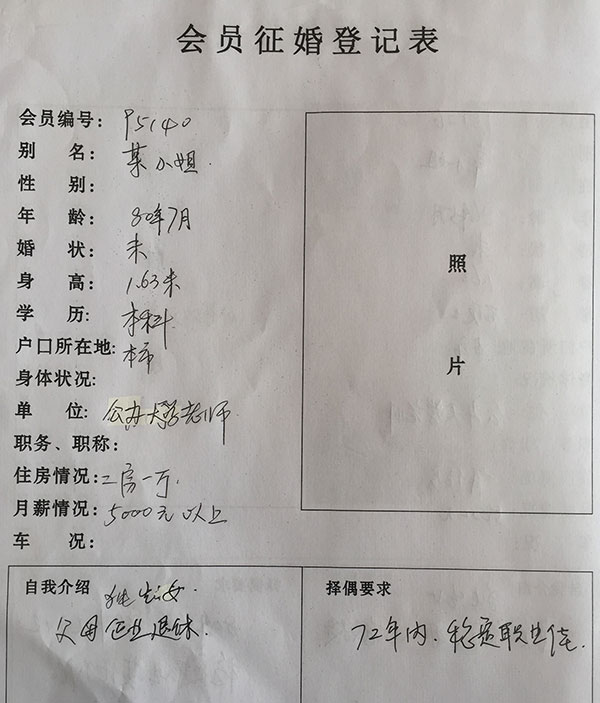 会员征婚登记表
会员编号: P5140
别 名: 某小姐.
性 别:
年 龄: 80年7月
婚 状: 未
身 高: 1.63米
学 历: 本科
户口所在地: 本市
身体状况:
单 位: 公办大学老师
职务、职称:
住房情况: 二房一厅.
月薪情况: 5000元以上
车 况:
照
片
自我介绍 独生女
父母企业退休.
择偶要求
72年内.稳定职业住.